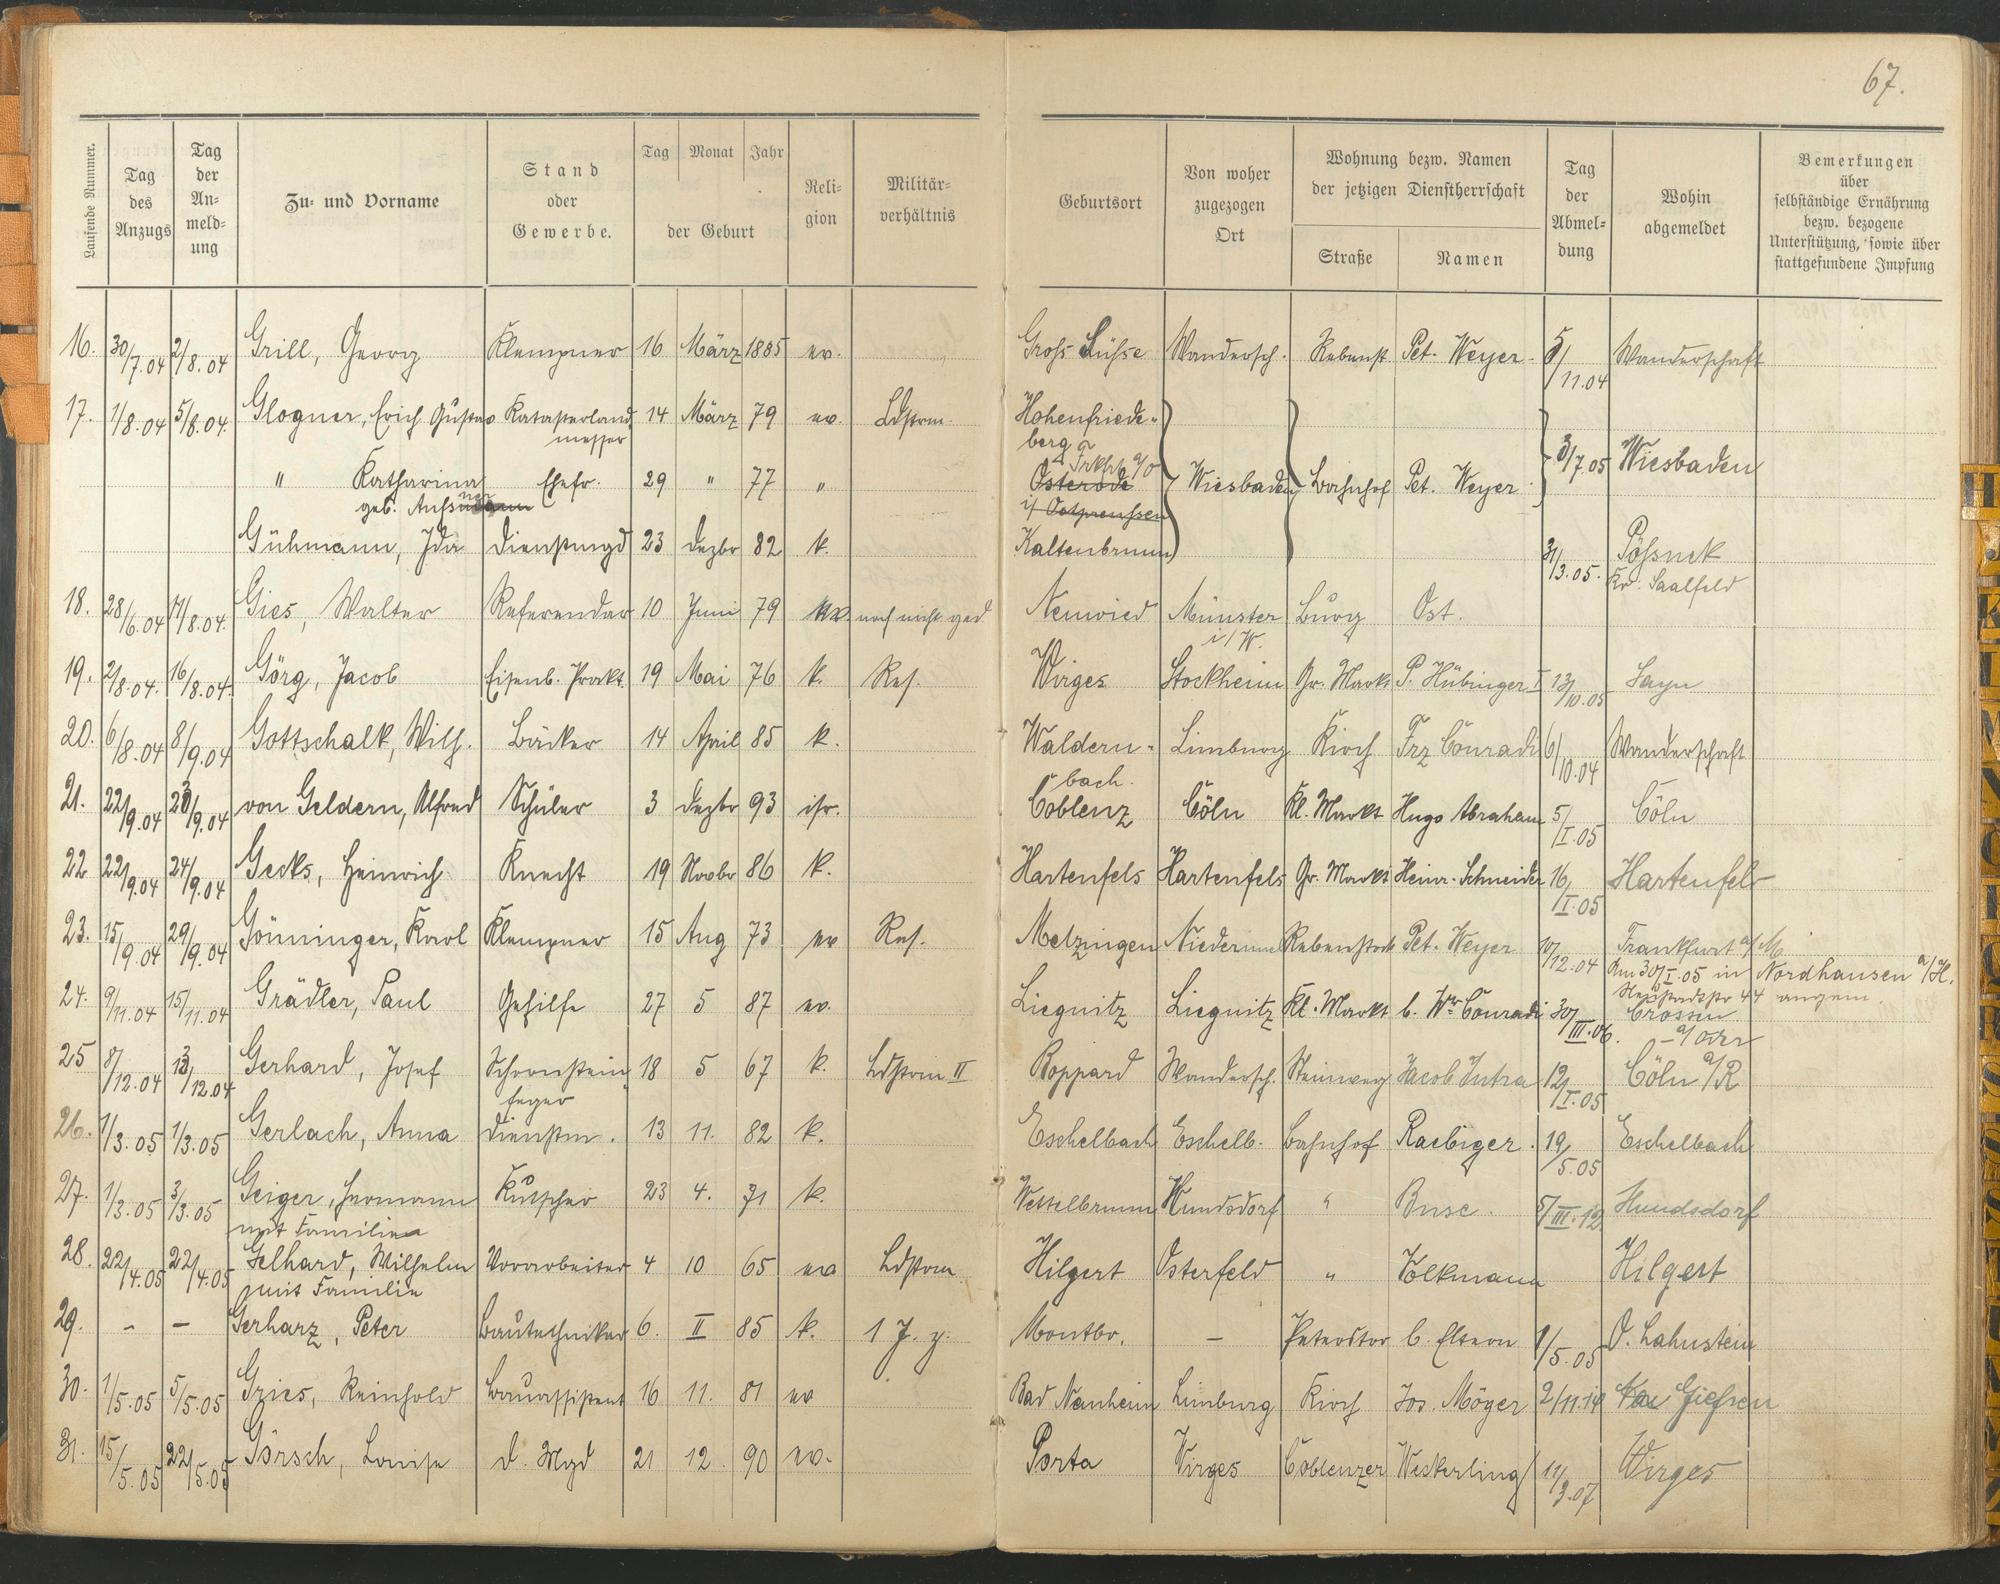 67.
Laufende Nummer.
Tag des Anzugs
Tag der An- meld- ung
Zu- und Vorname
Stand oder Gewerbe.
Tag Monat Jahr
der Geburt
Reli- gion
Militär- verhältnis
Geburtsort
Von woher zugezogen Ort
Wohnung bezw. Namen der jetzigen Dienstherrschaft
Straße
Namen
Tag der Abmel- dung
Wohin abgemeldet
Bemerkungen über selbständige Ernährung bezw. bezogene Unterstützung, sowie über stattgefundene Impfung
16. 30/7.04 2/8.04 Grill, Georg Klempner 16 März 1885 ev. Gross Wandersch. Rebenst Pet. Weyer 11.04 Wanderschaft
17. 1/8.04 5/8.04. Glogner, Erich Gustav Katasterland 14 März 79 ev. Ldstrm. Hohenfriede-
messer berg
" Katharina Ehefr. 29 " 77 " Frkfrt a/O Osterode Wiesbaden Bahnhof Pet. Weyer 3/7.05 Wiesbaden
geb. i/ Ostpreussen
Gühmann, Ida Dienstmgd 23 Dezbr 82 k. Kaltenbrunn 31/3.05. Pössnek
Kr. Saalfeld
18. 28/6.04 11/8.04. Gies, Walter Referendar 10 Juni 79 noch nicht ged Neuwied Münster Burg Ost.
i/W.
19. 2/8.04. 16/8.04. Görg, Jacob Eisenb. Prakt. 19 Mai 76 k. Res. Wirges Stockheim Gr. Markt P. Hübinger I 13/10.05 Sayn
20. 6/8.04 8/9.04 Gottschalk, Wilh. Bäcker 14 April 85 k. Waldern- Limburg Kirch Frz Conradi 6/10.04 Wanderschaft
bach.
21. 22/9.04 23/9.04 von Geldern, Alfred Schüler 3 Dezbr 93 isr. Coblenz Cöln Kl. Markt Hugo Abraham 5/I.05 Cöln
22 22/9.04 24/9.04 Gecks, Heinrich Knecht 19 Novbr 86 k. Hartenfels Hartenfels Gr. Markt Heinr. Schneider 16/I.05 Hartenfels
23. 15/9.04 29/9.04 Gönninger, Karl Klempner 15 Aug 73 ev Res. Metzingen Rebenstock Pet. Weyer 10/12.04 Frankfurt a/M
Am 30/I.05 in Nordhausen a/H.
44 angem.
24. 9/11.04 15/11.04 Grädler, Paul Gehilfe 27 5 87 ev. Liegnitz Liegnitz Kl. Markt b. Wwe Conradi 30/III.06. Crossen
a/Oder
25 8/12.04 13/12.04 Gerhard, Josef Schornstein 18 5 67 k. Ldstrm II Boppard Wandersch. Steinweg Jacob Intra 12/I.05 Cöln a/R
feger
26. 1/3.05 1/3.05 Gerlach, Anna Dienstm. 13 11. 82 k. Eschelbach Eschelb. Bahnhof Raebiger. 19/5.05 Eschelbach
27. 1/3.05 3/3.05 Geiger, Hermann Kutscher 23 4. 71 k. Wesselbrunn Hundsdorf " Buse. 8/III.12 Hundsdorf
mit Familie
28. 22/4.05 22/4.05 Gelhard, Wilhelm Vorarbeiter 4 10 65 ev Ldstrm Hilgert Osterfeld " Volkmann Hilgert
mit Familie
29. - - Gerharz, Peter Bautechniker 6. II 85 k. 1 J. Montbr. - Peterstor b. Eltern 1/5.05 O. Lahnstein
30. 1/5.05 5/5.05 Gries, Reinhold Bauassistent 16 11. 81 ev Bad Nauheim Limburg Kirch Jos. Möger 2/11.10 Giessen
31. 15/5.05 22/5.05 Görsch, Louise d. Mgd 21 12. 90 ev. Porta Wirges Coblenzer Weckerling 11/3.07 Wirges